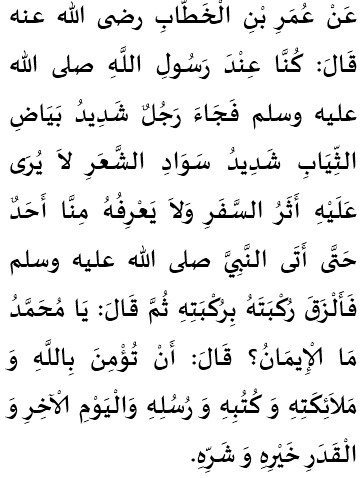 عَنْ عُمَرَ بْنِ الْخَطَّابِ رضى الله عنه
قَالَ: كُنَّا عِنْدَ رَسُولِ اللَّهِ صلى الله
عليه وسلم فَجَاءَ رَجُلٌ شَدِيدُ بَيَاضِ
الثِّيَابِ شَدِيدُ سَوَادِ الشَّعَرِ لاَ يُرَى
عَلَيْهِ أَثَرُ السَّفَرِ وَلاَ يَعْرِفُهُ مِنَّا أَحَدٌ
حَتَّى أَتَى النَّبِيَّ صلى الله عليه وسلم
فَأَلْزَقَ رُكْبَتَهُ بِرُكْبَتِهِ ثُمَّ قَالَ: يَا مُحَمَّدُ
مَا الْإِيمَانُ؟ قَالَ: أَنْ تُؤْمِنَ بِاللَّهِ وَ
مَلاَئِكَتِهِ وَ كُتُبِهِ وَ رُسُلِهِ وَالْيَوْمِ الْآخِرِ وَ
الْقَدَرِ خَيْرِهِ وَ شَرِّهِ.